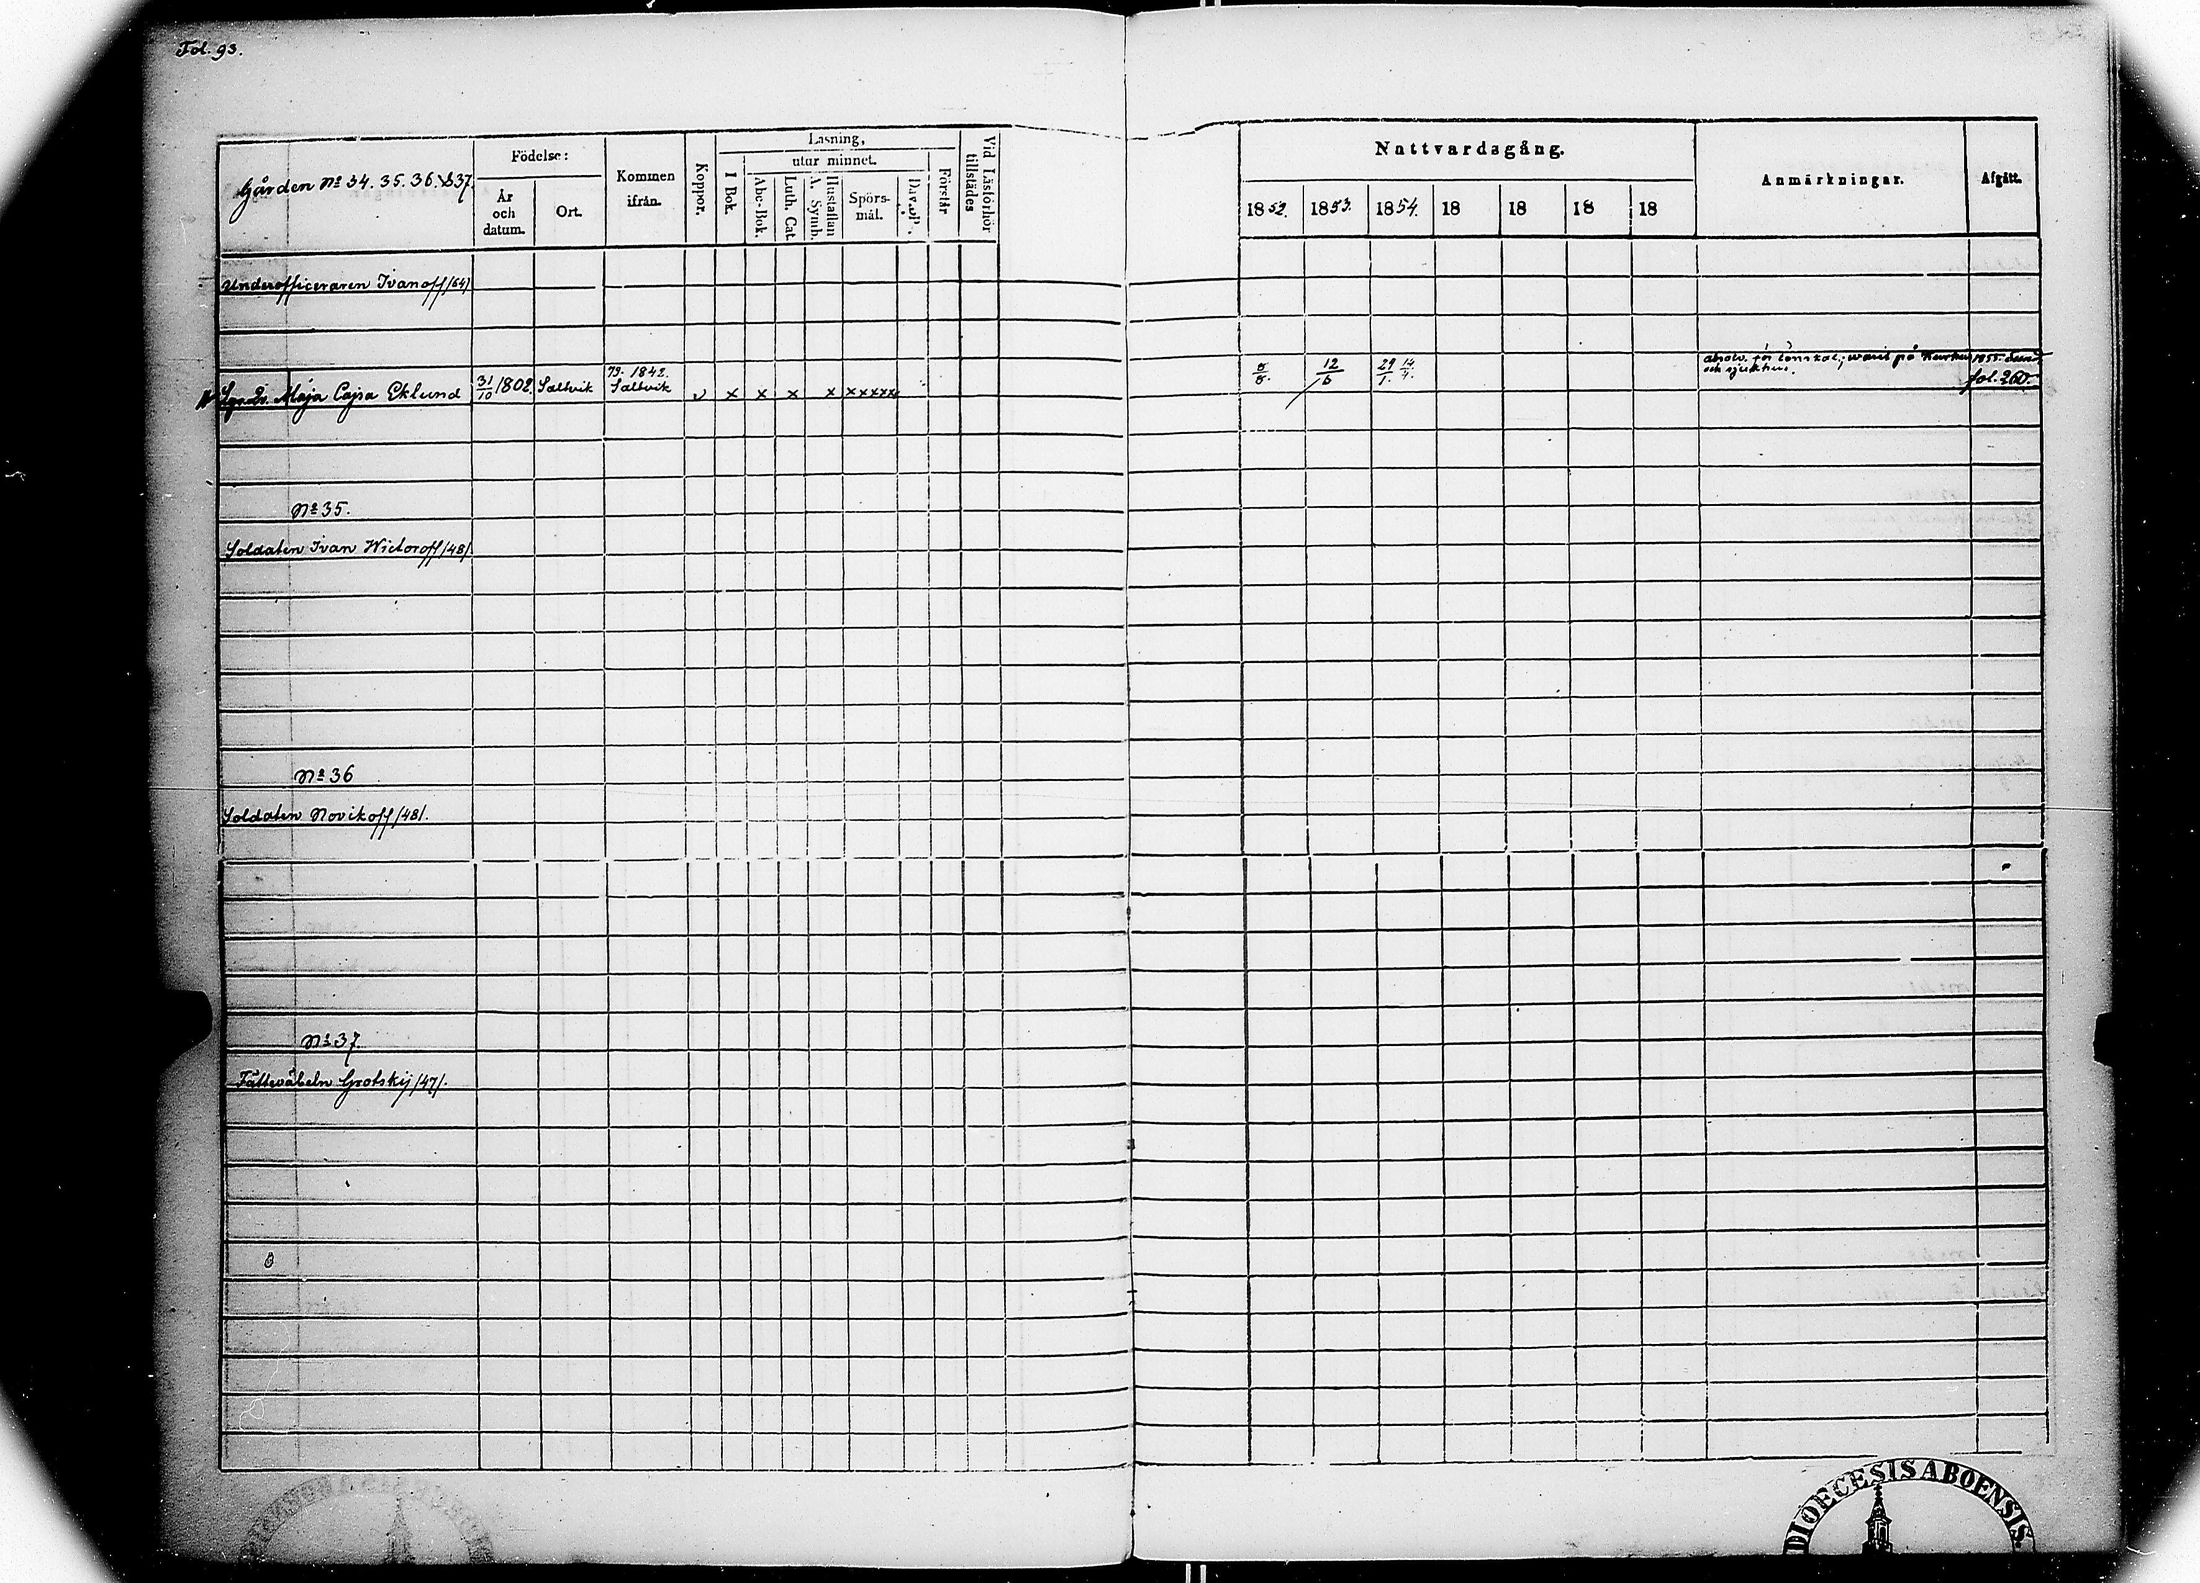 Fol. 93.
Gården No 34. 35. 36. & 37.
Födelse:
År och datum.
Ort.
Kommen ifrån.
Koppor.
Läsning,
I Bok.
utur minnet.
Abc-Bok.
Luth. Cat.
Hustaflan A. Symb.
Spörsmål.
Dav. Ps.
Förstår
Vid Läsförhör tillstädes
Nattvardsgång.
1852. 1853. 1854. 18 18 18 18
Anmärkningar.
Afgått.
Underofficeraren Ivanoff /64/
Maja Cajsa Eklund 31/10 1802. Saltvik 79. 1842. Saltvik v x x x x xxxxx 8/8. 12/6 29/1. 14/4. absolv. för lönskal.; warit på Kurhus 1855. Sund
och sjukhus. fol. 260.
No 35.
Soldaten Ivan Wictoroff /48/
No 36
Soldaten Novikoff /48/.
No 37.
Fältwäbeln Grotskij /47/.
DIOECESIS ABOENSIS.